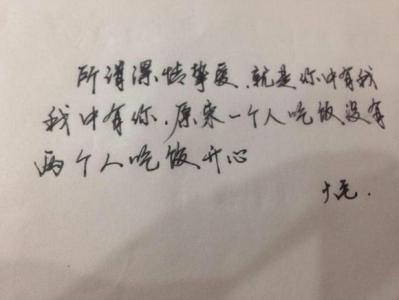 所谓深情挚爱,就是你中有我
我中有你,原来一个人吃饭没有
两个人吃饭开心